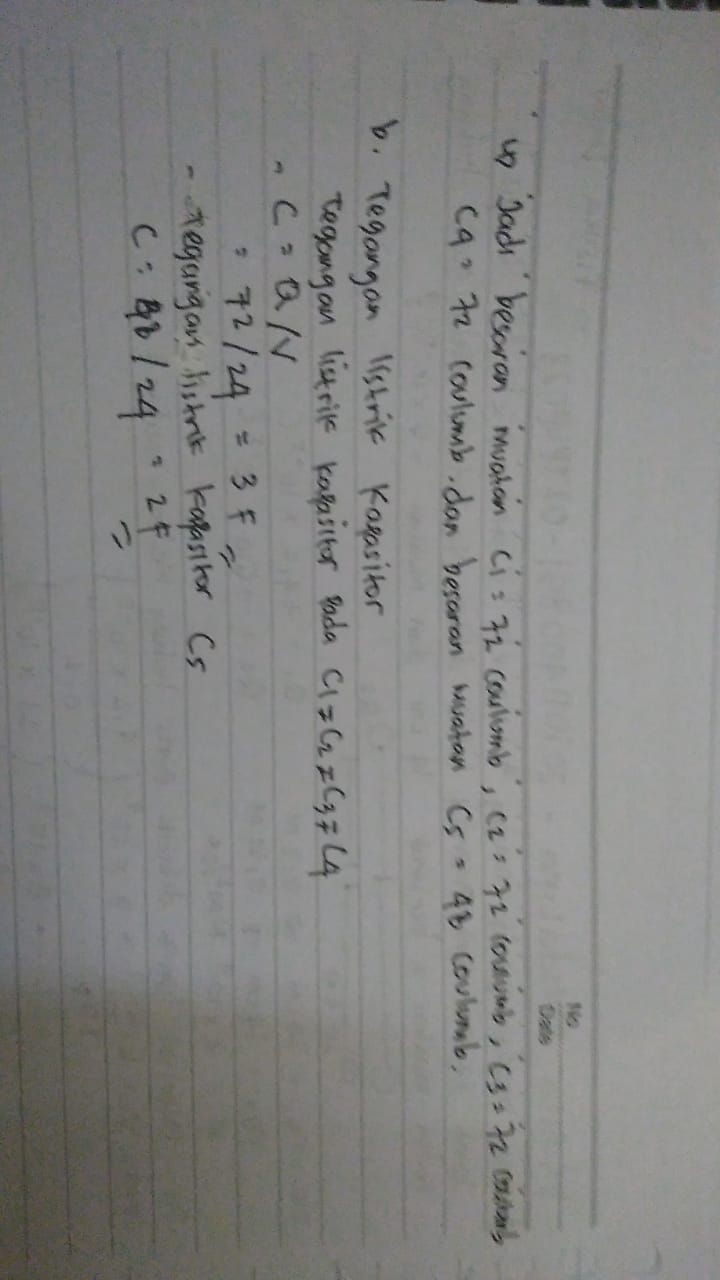 No
Date
Jadi besaran muatan C1 = 72 coulomb, C2 = 72 coulomb, C3 = 72 coulomb
C4 = 72 coulomb. dan besaran muatan C5 = 48 coulomb.
b. Tegangan listrik Kapasitor
Tegangan listrik kapasitor pada C1 = C2 = C3 = C4
- C = Q/V
= 72/24 = 3 F
- Tegangan listrik kapasitor C5
C = 48/24 = 2 F